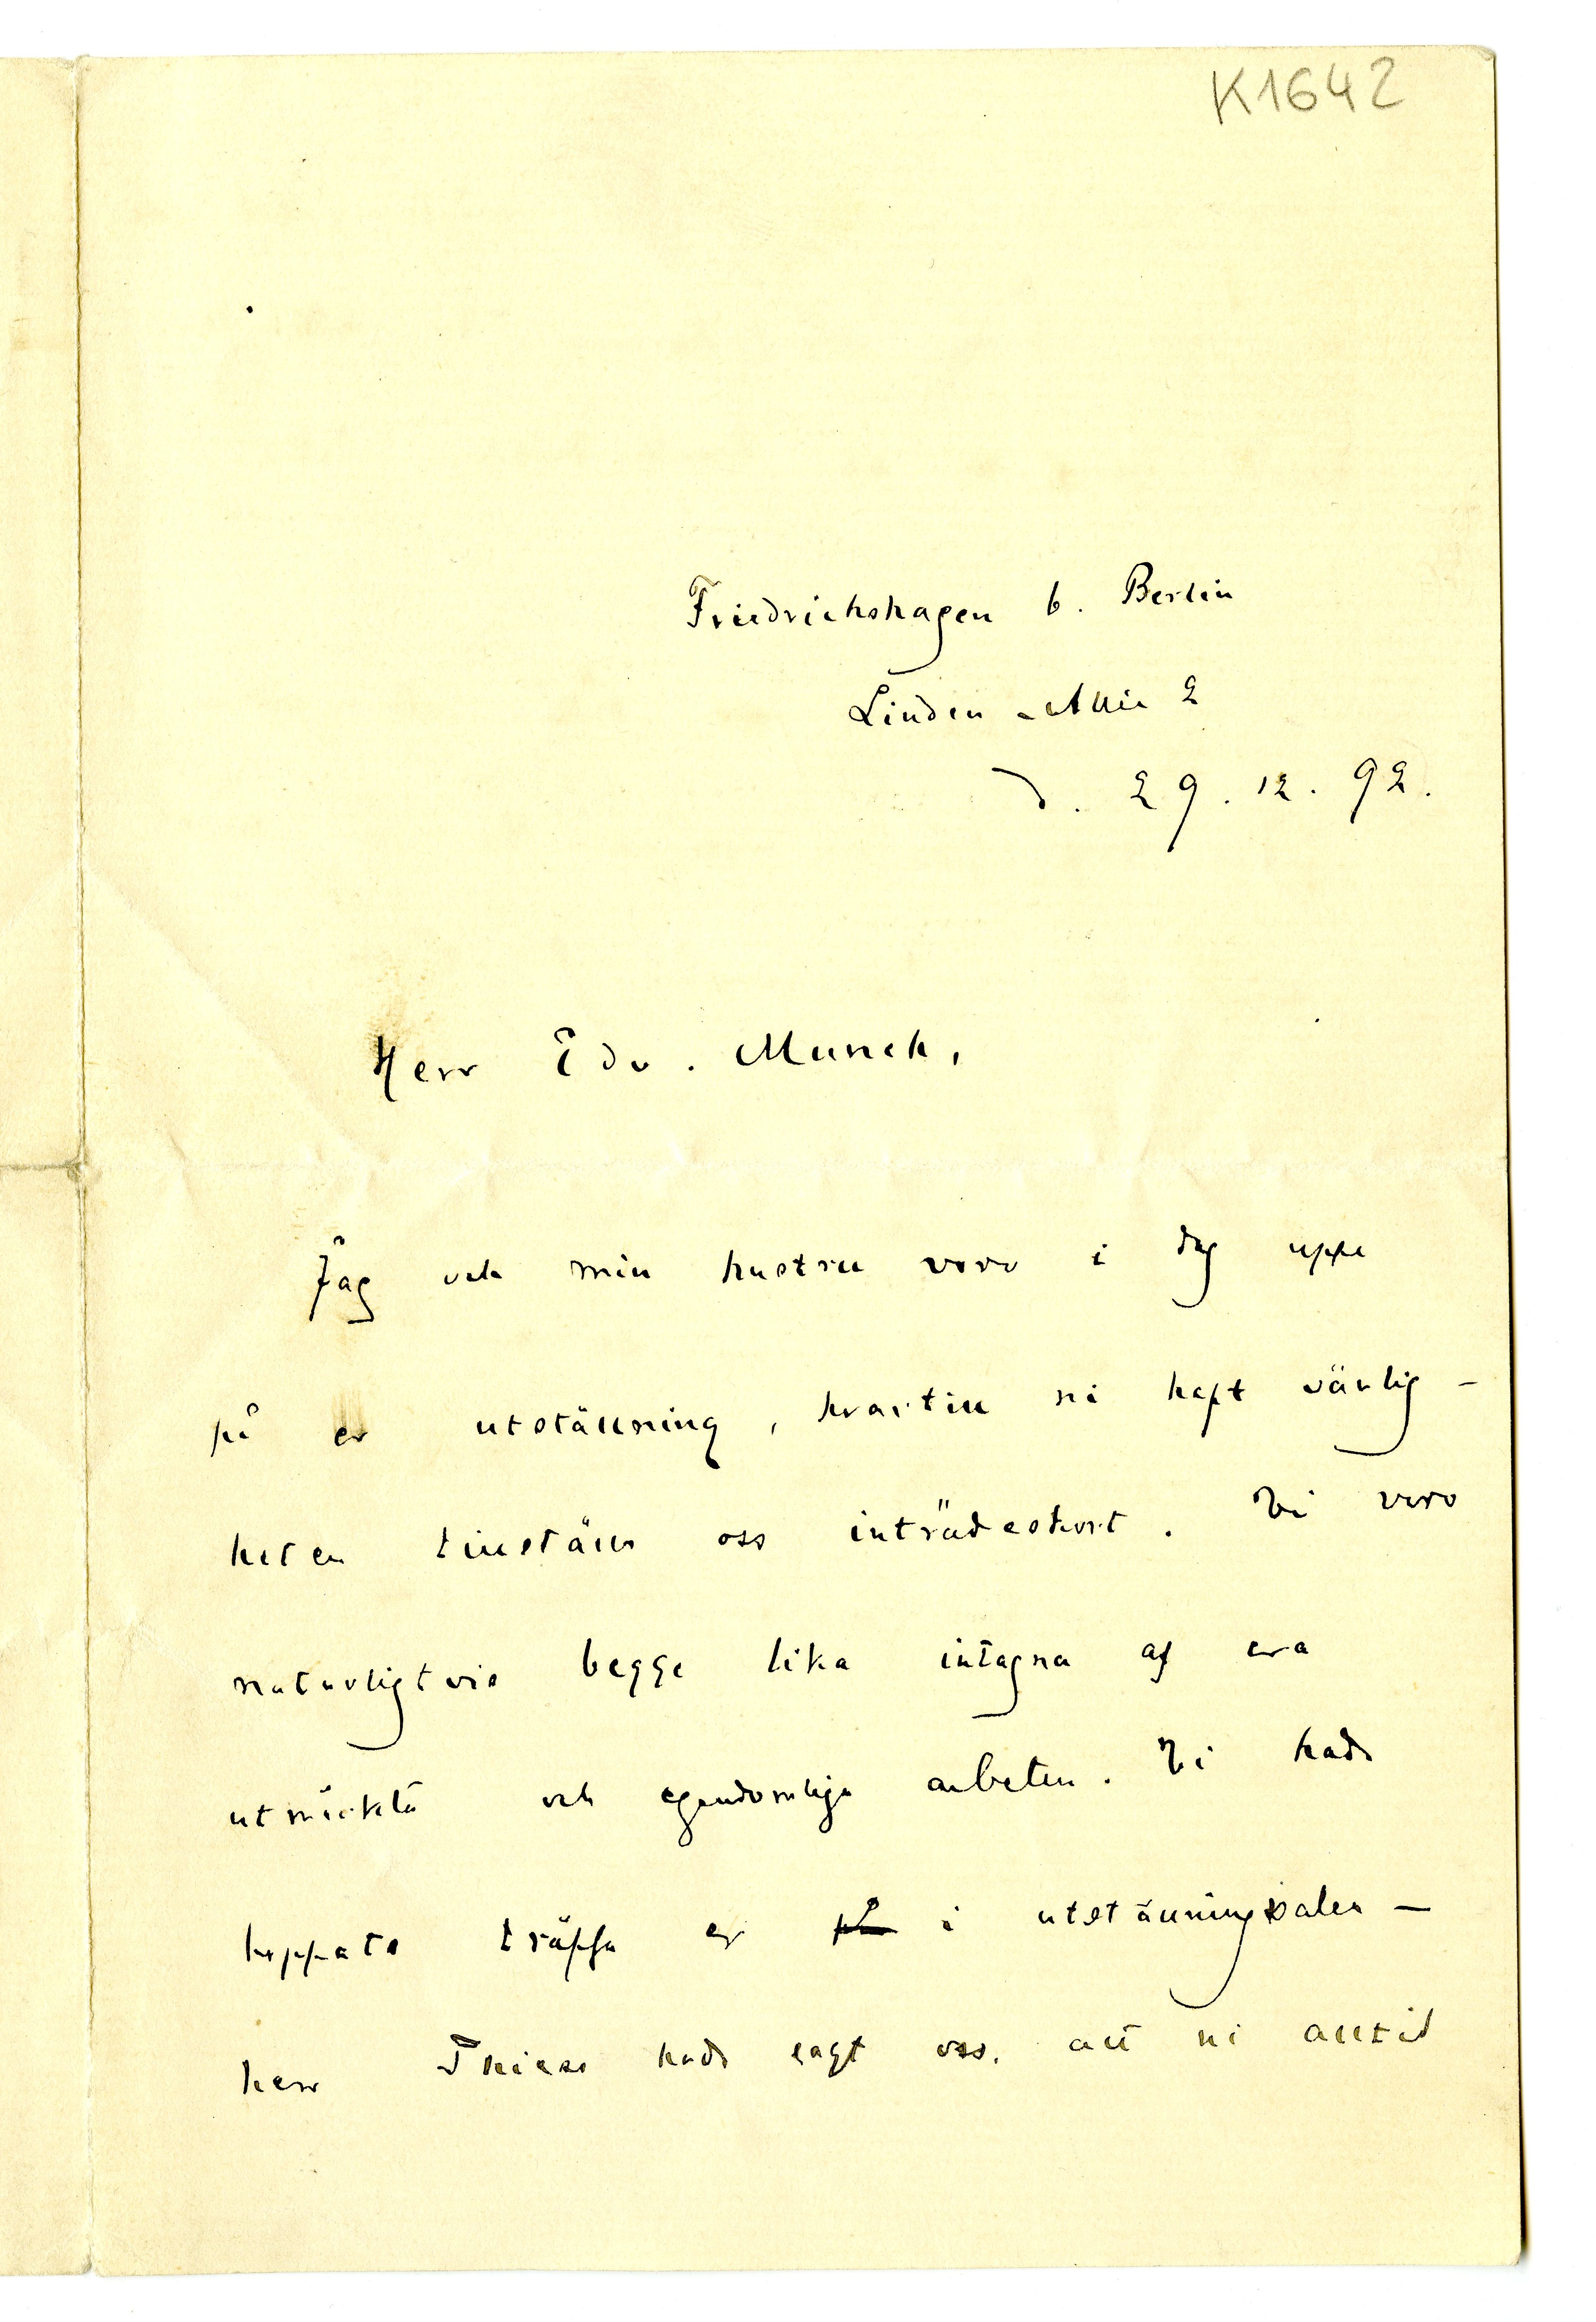 K1642
Friedrichshagen b. Berlin
Linden-Allée 2
d. 29.12.92.
Herr Edv. Munch,
Jag och min hustru voro i dag uppe
på er utställning, hvartill ni haft vänlig-
heten tillställa oss inträdeskort. Vi voro
naturligtvis begge lika intagna af era
utmärkta och egendomliga arbeten. Vi hade
hoppats träffa er på i utställningssalen –
herr Thiess hade sagt oss, att ni alltid